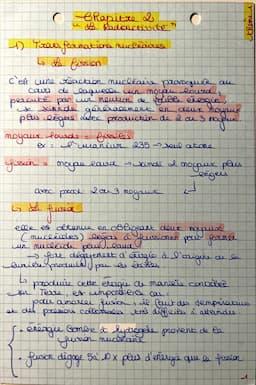 Chapitre 2
"La Radioactivité"
1) Transformations nucléaires
↳ La fission
C'est une réaction nucléaire provoquée au
cours de laquelle un noyau lourd,
percuté par un neutron de faible énergie,
se scinde généralement en deux noyaux
plus légers avec production de 2 ou 3 noyaux
noyaux lourds = fissiles
ex : l'uranium 235 → seul atome
fission = noyau lourd → scinde 2 noyaux plus
légers
avec prod 2 ou 3 noyaux
↳ La fusion
elle est obtenue en obligeant deux noyaux
(nucléides) légers à fusionner pour former
un nucléide plus lourd
→ fort dégagement d'énergie à l'origine de la
lumière produite par les étoiles
↳ produire cette énergie de manière contrôlée
sur Terre, est impossible car :
pour amorcer fusion : il faut des températures
et des pressions colossales très difficiles à atteindre
• énergie bombe H hydrogène provient de la
fusion nucléaire
• fusion dégage 5 à 10 x plus d'énergie que la fission
1